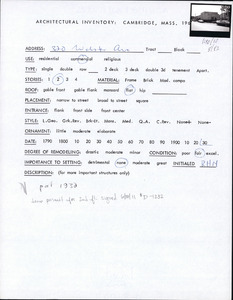 ARCHITECTURAL INVENTORY: CAMBRIDGE, MASS, 196
ADDRESS: 820 Ave Tract Block
USE: residential commercial religious
TYPE: single double row 2 deck 3 deck double 3d tenement Apart.
STORIES: 1 2 3 4 MATERIAL: Frame Brick Mod. compo
ROOF: gable front gable flank mansard flat hip
PLACEMENT: narrow to street broad to street square
ENTRANCE: flank front side front center
STYLE: L.Geo. Grk.Rev. Brkt. Mans. Med. Q.A. C.Rev. None
ORNAMENT: little moderate elaborate
DATE: 1790 1800 10 20 30 40 50 60 70 80 90 1900 10 20 30
DEGREE OF REMODELING: drastic moderate minor CONDITION: poor fair excel.
IMPORTANCE TO SETTING: detrimental none moderate great INITIALED RHN
DESCRIPTION: (for more important structures only)
post 1930